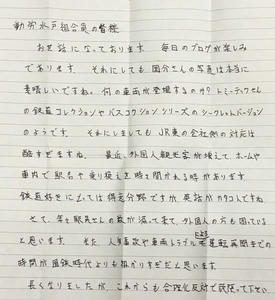 動労水戸組合員の皆様
お世話になっております。毎日のブログが楽しみ
であります。それにしても国分さんの写真は本当に
素晴しいですね。何の車両が登場するのか？トミーテックさん
の鉄道コレクションやバスコレクションシリーズのシークレットバージョン
のようです。それにしてもJR東の会社側の対応は
酷すぎますね。最近、外国人観光客が増えて、ホームや
車内で駅名や乗り換えを時々聞かれる時があります。
鉄道好きにしては得意分野ですが、英語がカタコトですね。
さて、年々駅員さんの数が減って来て、外国人の方も困っている
と思います。また、人身事故や車両トラブルによる運転再開までの
時間が国鉄時代よりも掛かりすぎだと思います。
長くなりましたが、これからも合理化反対で頑張って下さい。